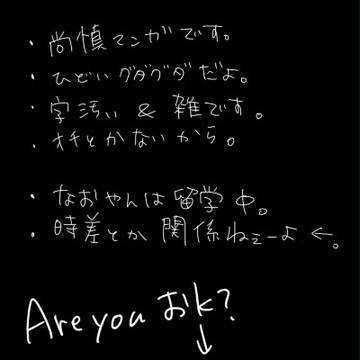 ・尚慎マンガです。
・ひどいグダグダだよ。
・字汚い & 雑です。
・オチとかないから。
・なおやんは留学中。
・時差とか関係ねェーよ ←。
Are you おk?
↓